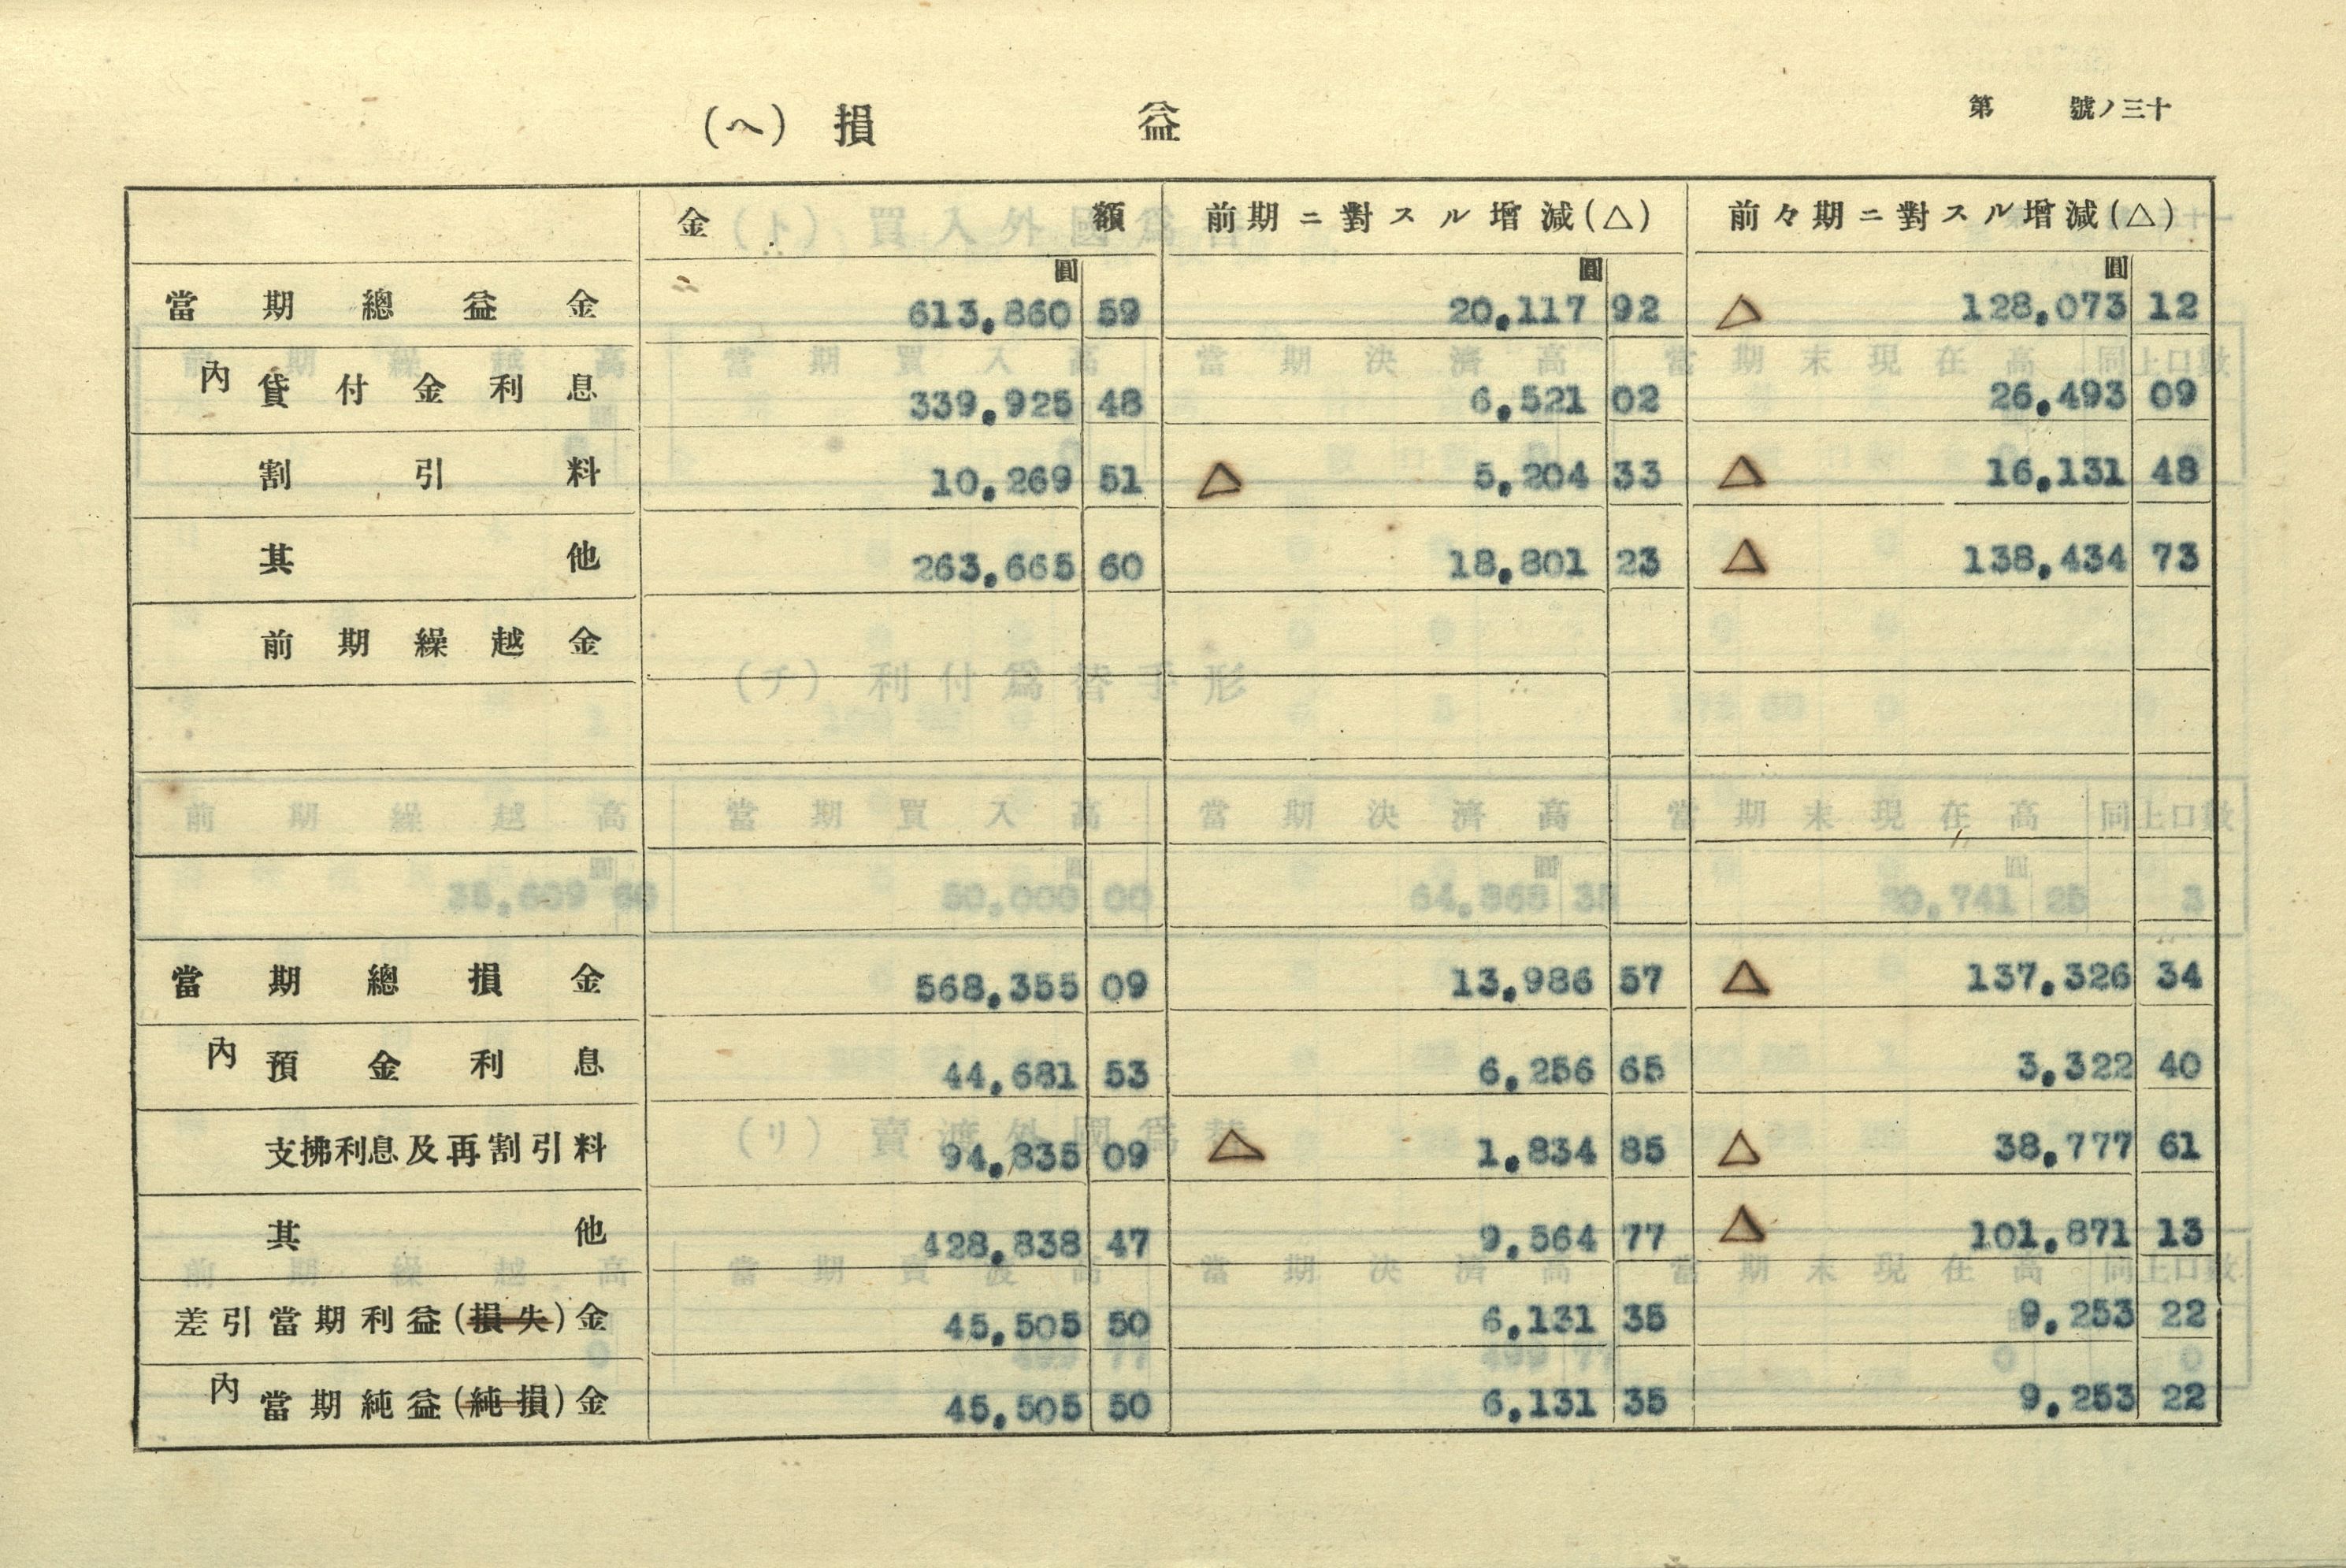 第　號ノ三十
(ヘ) 損益
金額 前期ニ對スル增減(△) 前々期ニ對スル增減(△)
圓 圓 圓
當期總益金 613,860 59 20,117 92 △ 128,073 12
內 貸付金利息 339,925 48 6,521 02 26,493 09
割引料 10,269 51 △ 5,204 33 △ 16,131 48
其他 263,665 60 18,801 23 △ 138,434 73
前期繰越金
當期總損金 568,355 09 13,986 57 △ 137,326 34
內 預金利息 44,681 53 6,256 65 3,322 40
支拂利息及再割引料 94,835 09 △ 1,834 85 △ 38,777 61
其他 428,838 47 9,564 77 △ 101,871 13
差引當期利益(損失)金 45,505 50 6,131 35 9,253 22
內 當期純益(純損)金 45,505 50 6,131 35 9,253 22